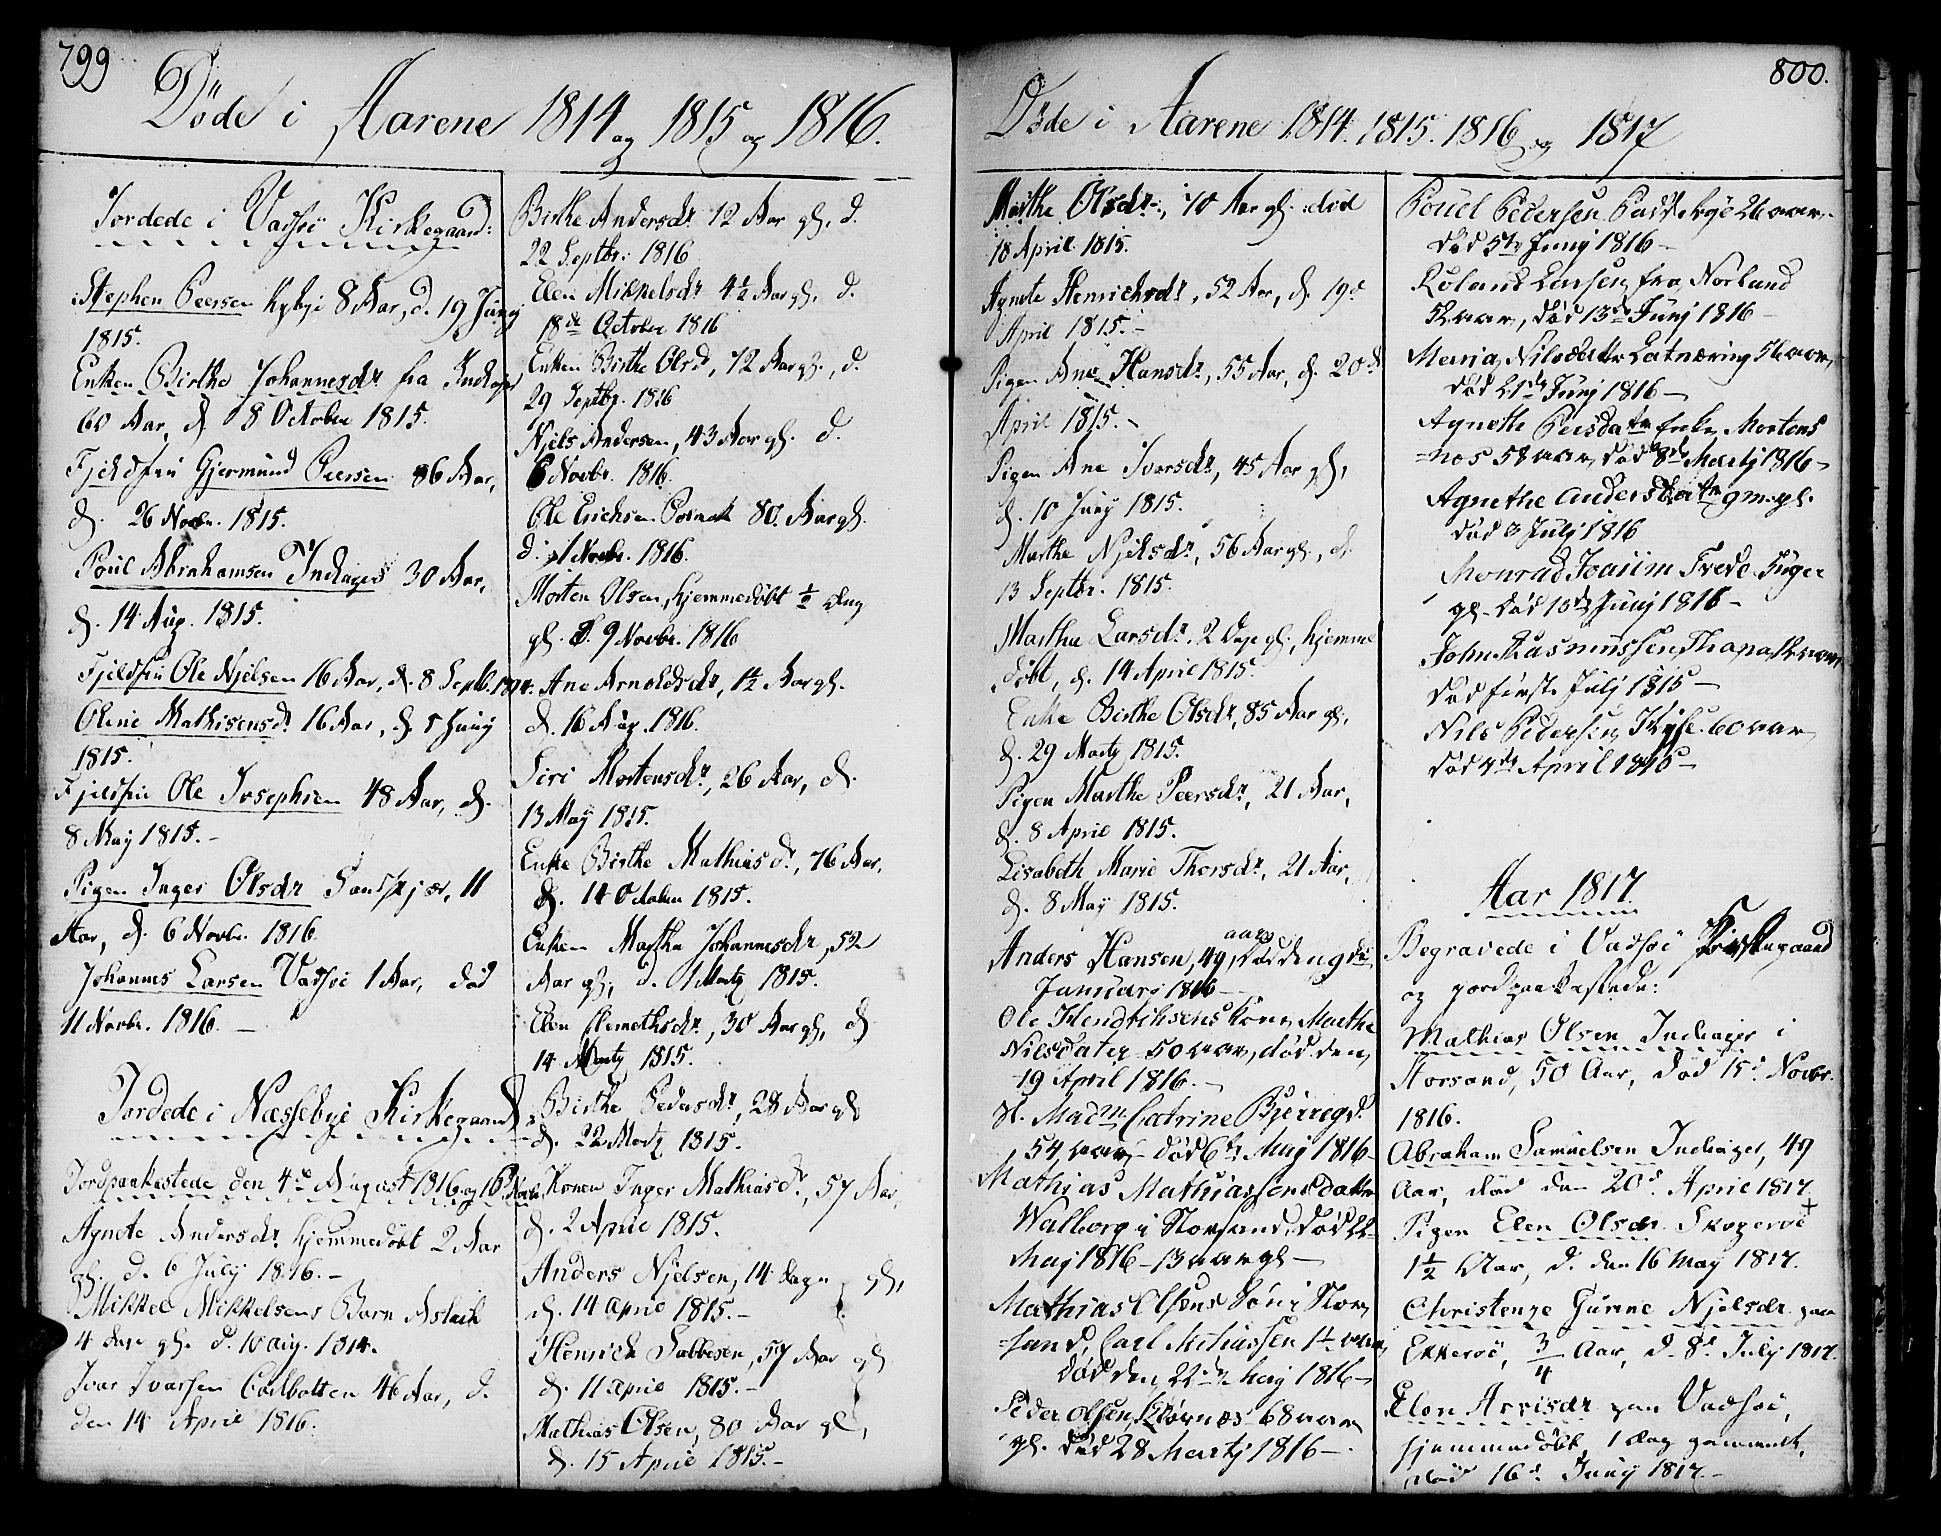 799
Døde i Aarene 1814 og 1815 og 1816.
Jordede i Vadsøe Kirkegaard:
Stephen Peersen Kybye 8 Aar, d. 19 Junj
1815.
Enken Birthe Johannesdr fra Indager
60 Aar, d. 8 October 1815.
Fjeldfin Gjermund Peersen 86 Aar,
d. 26 Novbr. 1815.
Poul Abrahamsen Indager 30 Aar,
d. 14 Aug. 1815.
Fjeldfin Ole Njelsen 16 Aar, d. 8 Septb. 1814.
Olene Mathisensdr 16 Aar, d. 5 Junj
1815.
Fjeldfin Ole Josephsen 48 Aar, d.
8 May 1815.-
Pigen Inger Olsdr Sandskjær, 11
Aar, d. 6 Novbr. 1816.
Johannes Larsen Vadsøe 1 Aar, død
11 Novbr. 1816. -
Jordede i Næssebye Kirkegaard
Jordpaakastede den 4de August 1816 og 16 Novb.
Agnete Andersdr. hjemmedøbt 2 Aar
gl. d. 6 July 1816.-
Mikkel Mikkelsens Barn Aslack
4 dage gl. d. 10 aug. 1814.
Iver Iversen 46 Aar, d.
den 14 April 1816.
Birthe Andersdr. 12 Aar gl. d.
22 Septbr. 1816
Elen Mikkelsdr 4½ Aar gl. d.
18de October 1816
Enken Birthe Olsd, 72 Aar gl., d.
29 Septbr. 1816
Njels Andersen, 43 Aar gl. d.
6 Novbr. 1816.
Ole Erichsen 80. Aar gl.
d. 1 Novbr. 1816.
Morten Olsen, hjemmedøbt ½ dag
gl. d. 9 Novbr. 1816
Ane Arnoldsdr, 1½ Aar gl.
d. 16 Aug. 1816.
Siri Mortensdr, 26 Aar, d.
13 May 1815.
Enke Birthe Mathiasdr, 76 Aar,
d. 14 October 1815.
Enken Marthe Johannesdr, 52
Aar gl, d. 1 Martz 1815.
Elen Clemethsdr, 30 Aar gl, d
14 Martz 1815.
Birthe Pedersdr, 28 Aar gl
d. 22 Martz 1815.
Konen Inger Mathiasdr, 57 Aar,
d. 2 April 1815.
Anders Njelsen, 14 dage gl,
d. 14 april 1815.-
Henrich Sabbesen, 57 Aar gl
d. 11 april 1815.-
Mathias Olsen, 80 Aar gl,
d. 15 April 1815.-
800.
Døde i Aarene 1814. 1815. 1816 og 1817
Marthe Olsdr, 10 Aar gl. død
18 April 1815.
Agnete Henrichsdr, 52 Aar, d. 19d
April 1815.-
Pigen Ane Hansdr, 55 Aar, d. 20d
April 1815.-
Pigen Ane Iversdr, 45 Aar gl,
d. 10 Juny 1815.
Marthe Njelsdr, 56 Aar gl, d.
13 Septbr. 1815.
Marthe Larsdr, 2 Dage gl, hjemme
døbt, d. 14 April 1815.
Enke Birthe Olsdr, 85 Aar gl,
d. 29 Martz 1815.
Pigen Marthe Peersdr, 21 Aar,
d. 8 April 1815.
Lisabeth Marie Thorsdr, 21 Aar,
d. 8 May 1815.
Anders Hansen, 49 aar, død den 9de
Januarj 1816-
Ole Hendrihsens kone Marthe
Nilsdater 50 aar, død den
19 April 1816.-
Sl. Madm Catrine Bjerregd.
54 aar død 6te Maj 1816-
Mathias Mathiassens datter
Walborg i Storsand død 22
Maj 1816-13 aar gl-
Mathias Olsens Søn i Stor
-sand, Carl Mathiassen 1½ aar
død den 22de Maj 1816-
Peder Olsen 68 aar
gl. død 28 Martj 1816-.
Pouel Pedersen 26 aar.-
død 5te Junj 1816-
Roland Larsen, fra Norland
52 aar, død 13de Junj 1816-
Maria Nilsdatter Latnæring 56 aar,
død 21de Junj 1816-
Agnethe Peersdatter Enke, Mortens
-nes 58 aar, død 8de Martj 1816-
Agnethe Andersdatter 9 m. gl.
død 3 Julj 1816
Monrad Joacim Frede 5 uger
gl. død 10de Junj 1816-
John Rasmussen Thana 52 aar
død første Julj 1815-
Nils Pedersen 60 aar
død 4de April 1816-
Aar 1817.
Begravede i Vadsøe Kirkegaard
og jordpaakastede:
Mathias Olsen Indiager i
Storsand, 50 Aar, død 15d Novbr.
1816.
Abraham Samuelsen Indiager, 49
Aar, død den 20d April 1817.
Pigen Elen Olsdr Skogerøe +
1½ Aar, d. den 16 May 1817.
Christenze Gurine Njelsdr. paa
Ekkerøe, ¾ Aar, d. 8d July 1817.
Elen Arrisdr paa Vadsøe,
hjemmedøbt, 1 dag gammel,
død 16d Junij 1817.-